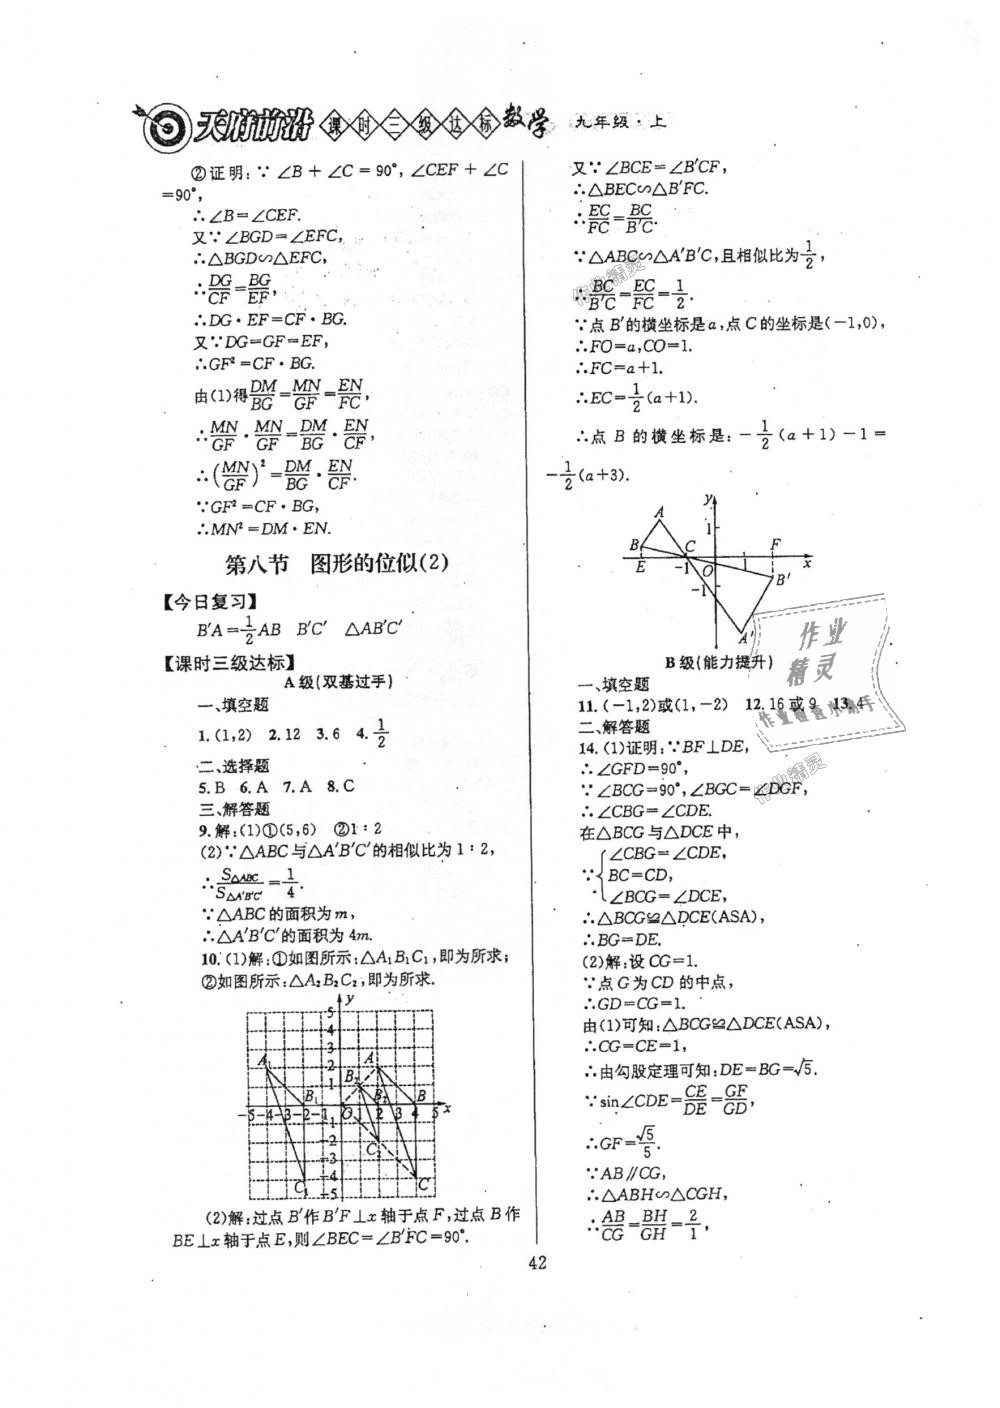 天府前沿 课时三级达标 数学 九年级·上
②证明:∵ ∠B + ∠C = 90°, ∠CEF + ∠C
=90°,
∴∠B=∠CEF.
又∵∠BGD=∠EFC,
∴△BGD∽△EFC,
∴DG/CF=BG/EF,
∴DG·EF=CF·BG.
又∵DG=GF=EF,
∴GF²=CF·BG.
由(1)得DM/BG=MN/GF=EN/FC,
∴MN/GF·MN/GF=DM/BG·EN/CF,
∴(MN/GF)²=DM/BG·EN/CF.
∵GF²=CF·BG,
∴MN²=DM·EN.
第八节 图形的位似(2)
【今日复习】
B′A=1/2AB B′C′ △AB′C′
【课时三级达标】
A级(双基过手)
一、填空题
1.(1,2) 2.12 3.6 4.1/2
二、选择题
5.B 6.A 7.A 8.C
三、解答题
9.解:(1)①(5,6) ②1:2
(2)∵△ABC与△A′B′C′的相似比为1:2,
∴S△ABC/S△A′B′C′=1/4.
∵△ABC的面积为m,
∴△A′B′C′的面积为4m.
10.(1)解:①如图所示:△A₁B₁C₁,即为所求;
②如图所示:△A₂B₂C₂,即为所求.
y
5
4
3
2
1
A₁ A
B₂
B₁ O B₂ B
-5-4-3-2-1 1 2 3 4 5 x
-1
-2
-3
-4
-5
C₂
C₁ C
(2)解:过点B′作B′F⊥x轴于点F,过点B作
BE⊥x轴于点E,则∠BEC=∠B′FC=90°.
又∵∠BCE=∠B′CF,
∴△BEC∽△B′FC.
∴EC/FC=BC/B′C.
∵△ABC∽△A′B′C,且相似比为1/2,
∴BC/B′C=EC/FC=1/2.
∵点B′的横坐标是a,点C的坐标是(-1,0),
∴FO=a,CO=1.
∴FC=a+1.
∴EC=1/2(a+1).
∴点 B 的横坐标是: -1/2(a+1)-1=
-1/2(a+3).
y
A 1
B C F
E -1 O 1 x
-1 B′
A′
B级(能力提升)
一、填空题
11.(-1,2)或(1,-2) 12.16或9 13.4
二、解答题
14.(1)证明:∵BF⊥DE,
∴∠GFD=90°,
∵∠BCG=90°,∠BGC=∠DGF,
∴∠CBG=∠CDE.
在△BCG与△DCE中,
∠CBG=∠CDE,
∵{BC=CD,
∠BCG=∠DCE,
∴△BCG≌△DCE(ASA),
∴BG=DE.
(2)解:设CG=1.
∵点G为CD的中点,
∴GD=CG=1.
由(1)可知:△BCG≌△DCE(ASA),
∴CG=CE=1,
∴由勾股定理可知:DE=BG=√5.
∵sin∠CDE=CE/DE=GF/GD,
∴GF=√5/5.
∵AB∥CG,
∴△ABH∽△CGH,
∴AB/CG=BH/GH=2/1,
42
作业
精灵
作业检查小助手
作业精灵
作业精灵